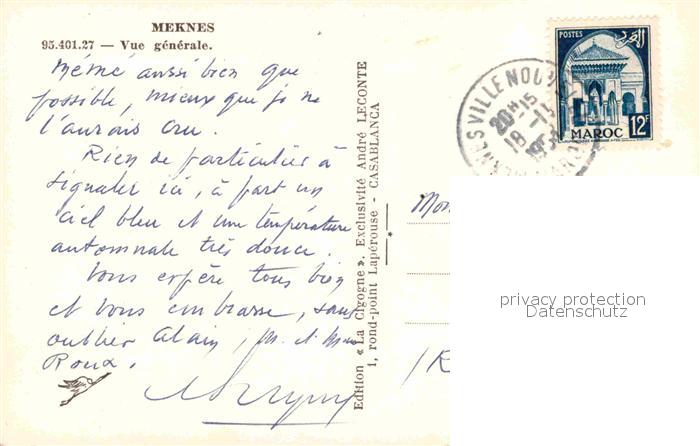 MEKNES
95.401.27 — Vue générale.
Mémé aussi bien que
possible, mieux que je ne
l'aurais cru.
Rien de particulier à
signaler ici, à part un
ciel bleu et une température
automnale très douce.
Vous espère tous bien
et vous embrasse, sans
oublier Alain, M. et Mme
Roux.
Edition « La Cigogne ». Exclusivité André LECONTE
1, rond-point Lapérouse - CASABLANCA
POSTES
MAROC 12F
MEKNES VILLE NOUV
20H-15
18-11
MAROC
Mon
privacy protection
Datenschutz